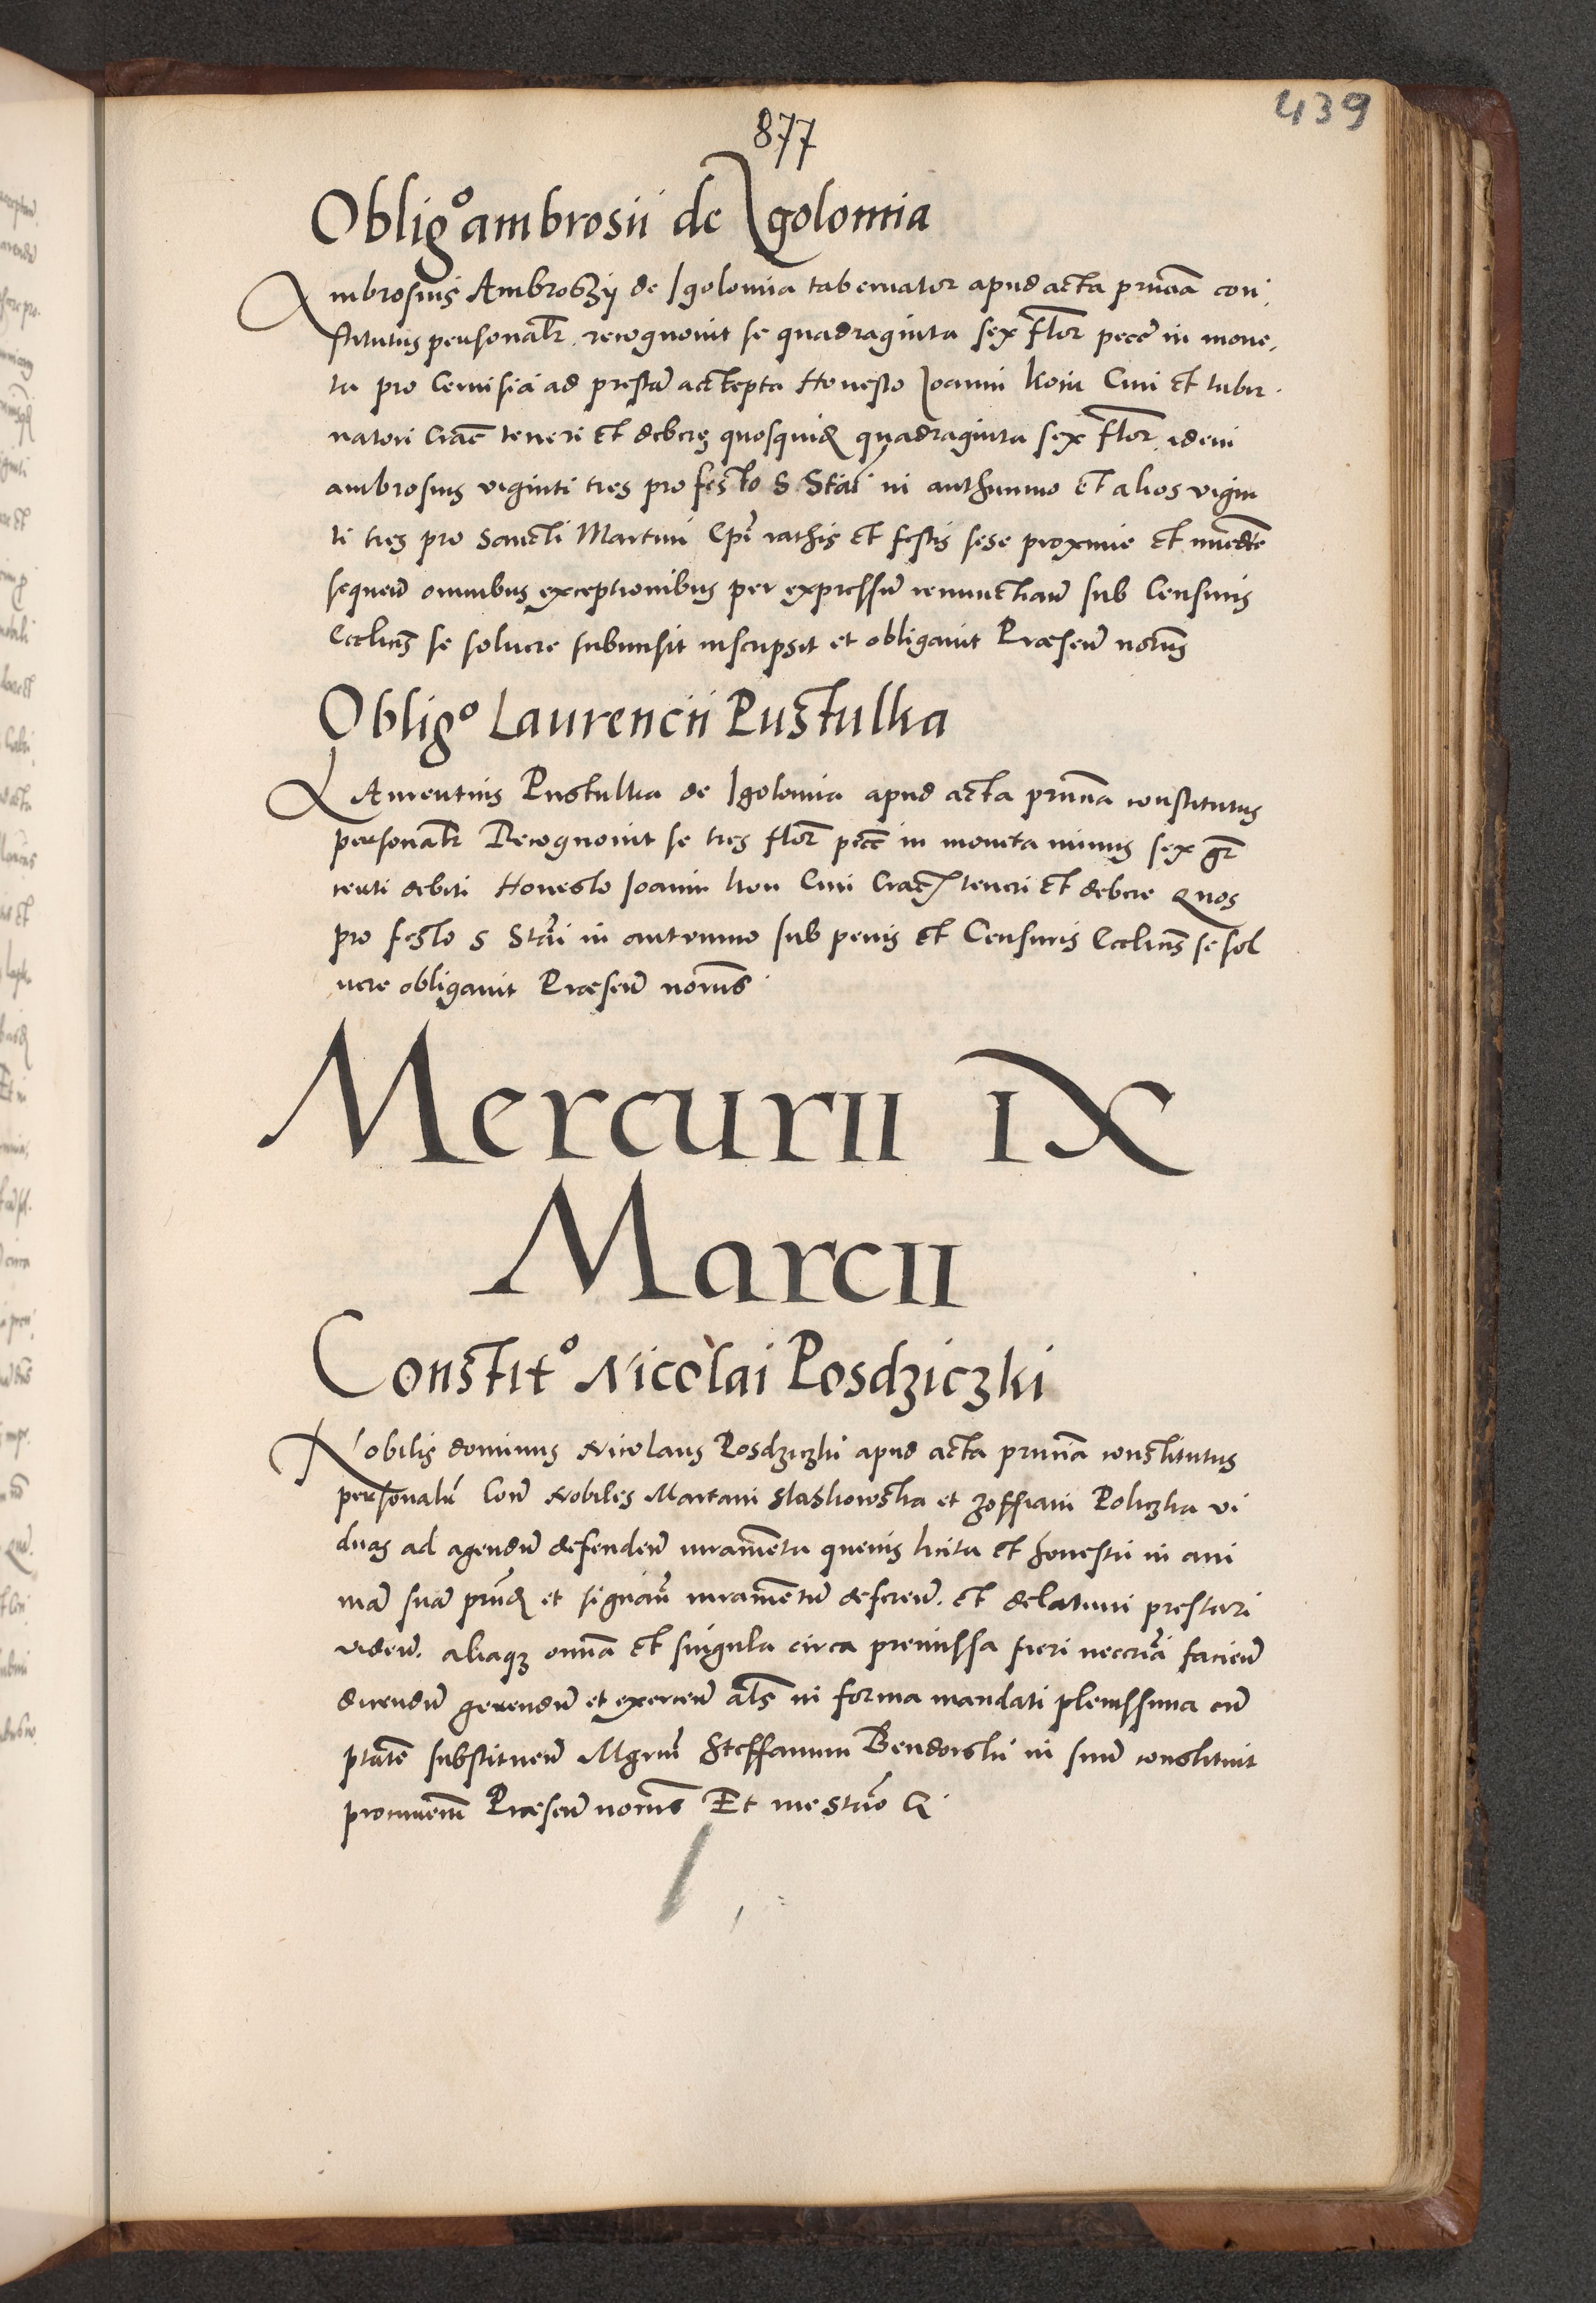 439
877
Oblig⁰ ambrosii de Igolomia
Ambrosius Ambrozij de Igolomia tabernator apud acta prnāa con
stitutus personalr recognovit se quadraginta sex flor pecc in mone
ta pro Cervisia ad prestam acceptta Honesto Joanni Koin Civi et taber
natori Crac teneri et debere quosquid quadraginta sex flor idem
ambrosius viginti tres pro festo S Stāi in authumno et alios vigin
ti tres pro Sancti Martini Epi rathis et festis sese proxime et immedte
sequen omnibus exceptionibus per expressum renunctian sub Censuris
Ecclicis se solvere submisit inscripsit et obligavit Præsen notus
Oblig⁰ Laurencii Pustulka
LAurentius Pustulka de Igolomia apud acta prnna constitutus
personalr Recognovit se tres flor pecc in moneta minus sex gr
certi debiti Honesto Joanni Civi Crac teneri et debere Quos
pro festo S Stāi in autumno sub penis et Censuris Ecclicis se sol
vere obligavit Præsen notus
Mercurii IX
Marcii
Constit⁰ Nicolai Posdziczki
Nobilis dominus Nicolaus Posdziczki apud acta prnna constitutus
personalr Con Nobiles Martam Slaskowska et Zoffiam Policzka vi
duas ad agendum defenden iuramenta quevis licita et honesta in ani
mam suam prnd et signan iuramentum deferen et delatum prestari
viden. aliaq3 omnia et singula circa premissa fieri neccria facien
dicendum gerendum et exercen als in forma mandati plenissima cum
ptate substituen Mgrum Steffanum Bendorski in suum constituit
procuratem Præsen notus Et me Stāo &